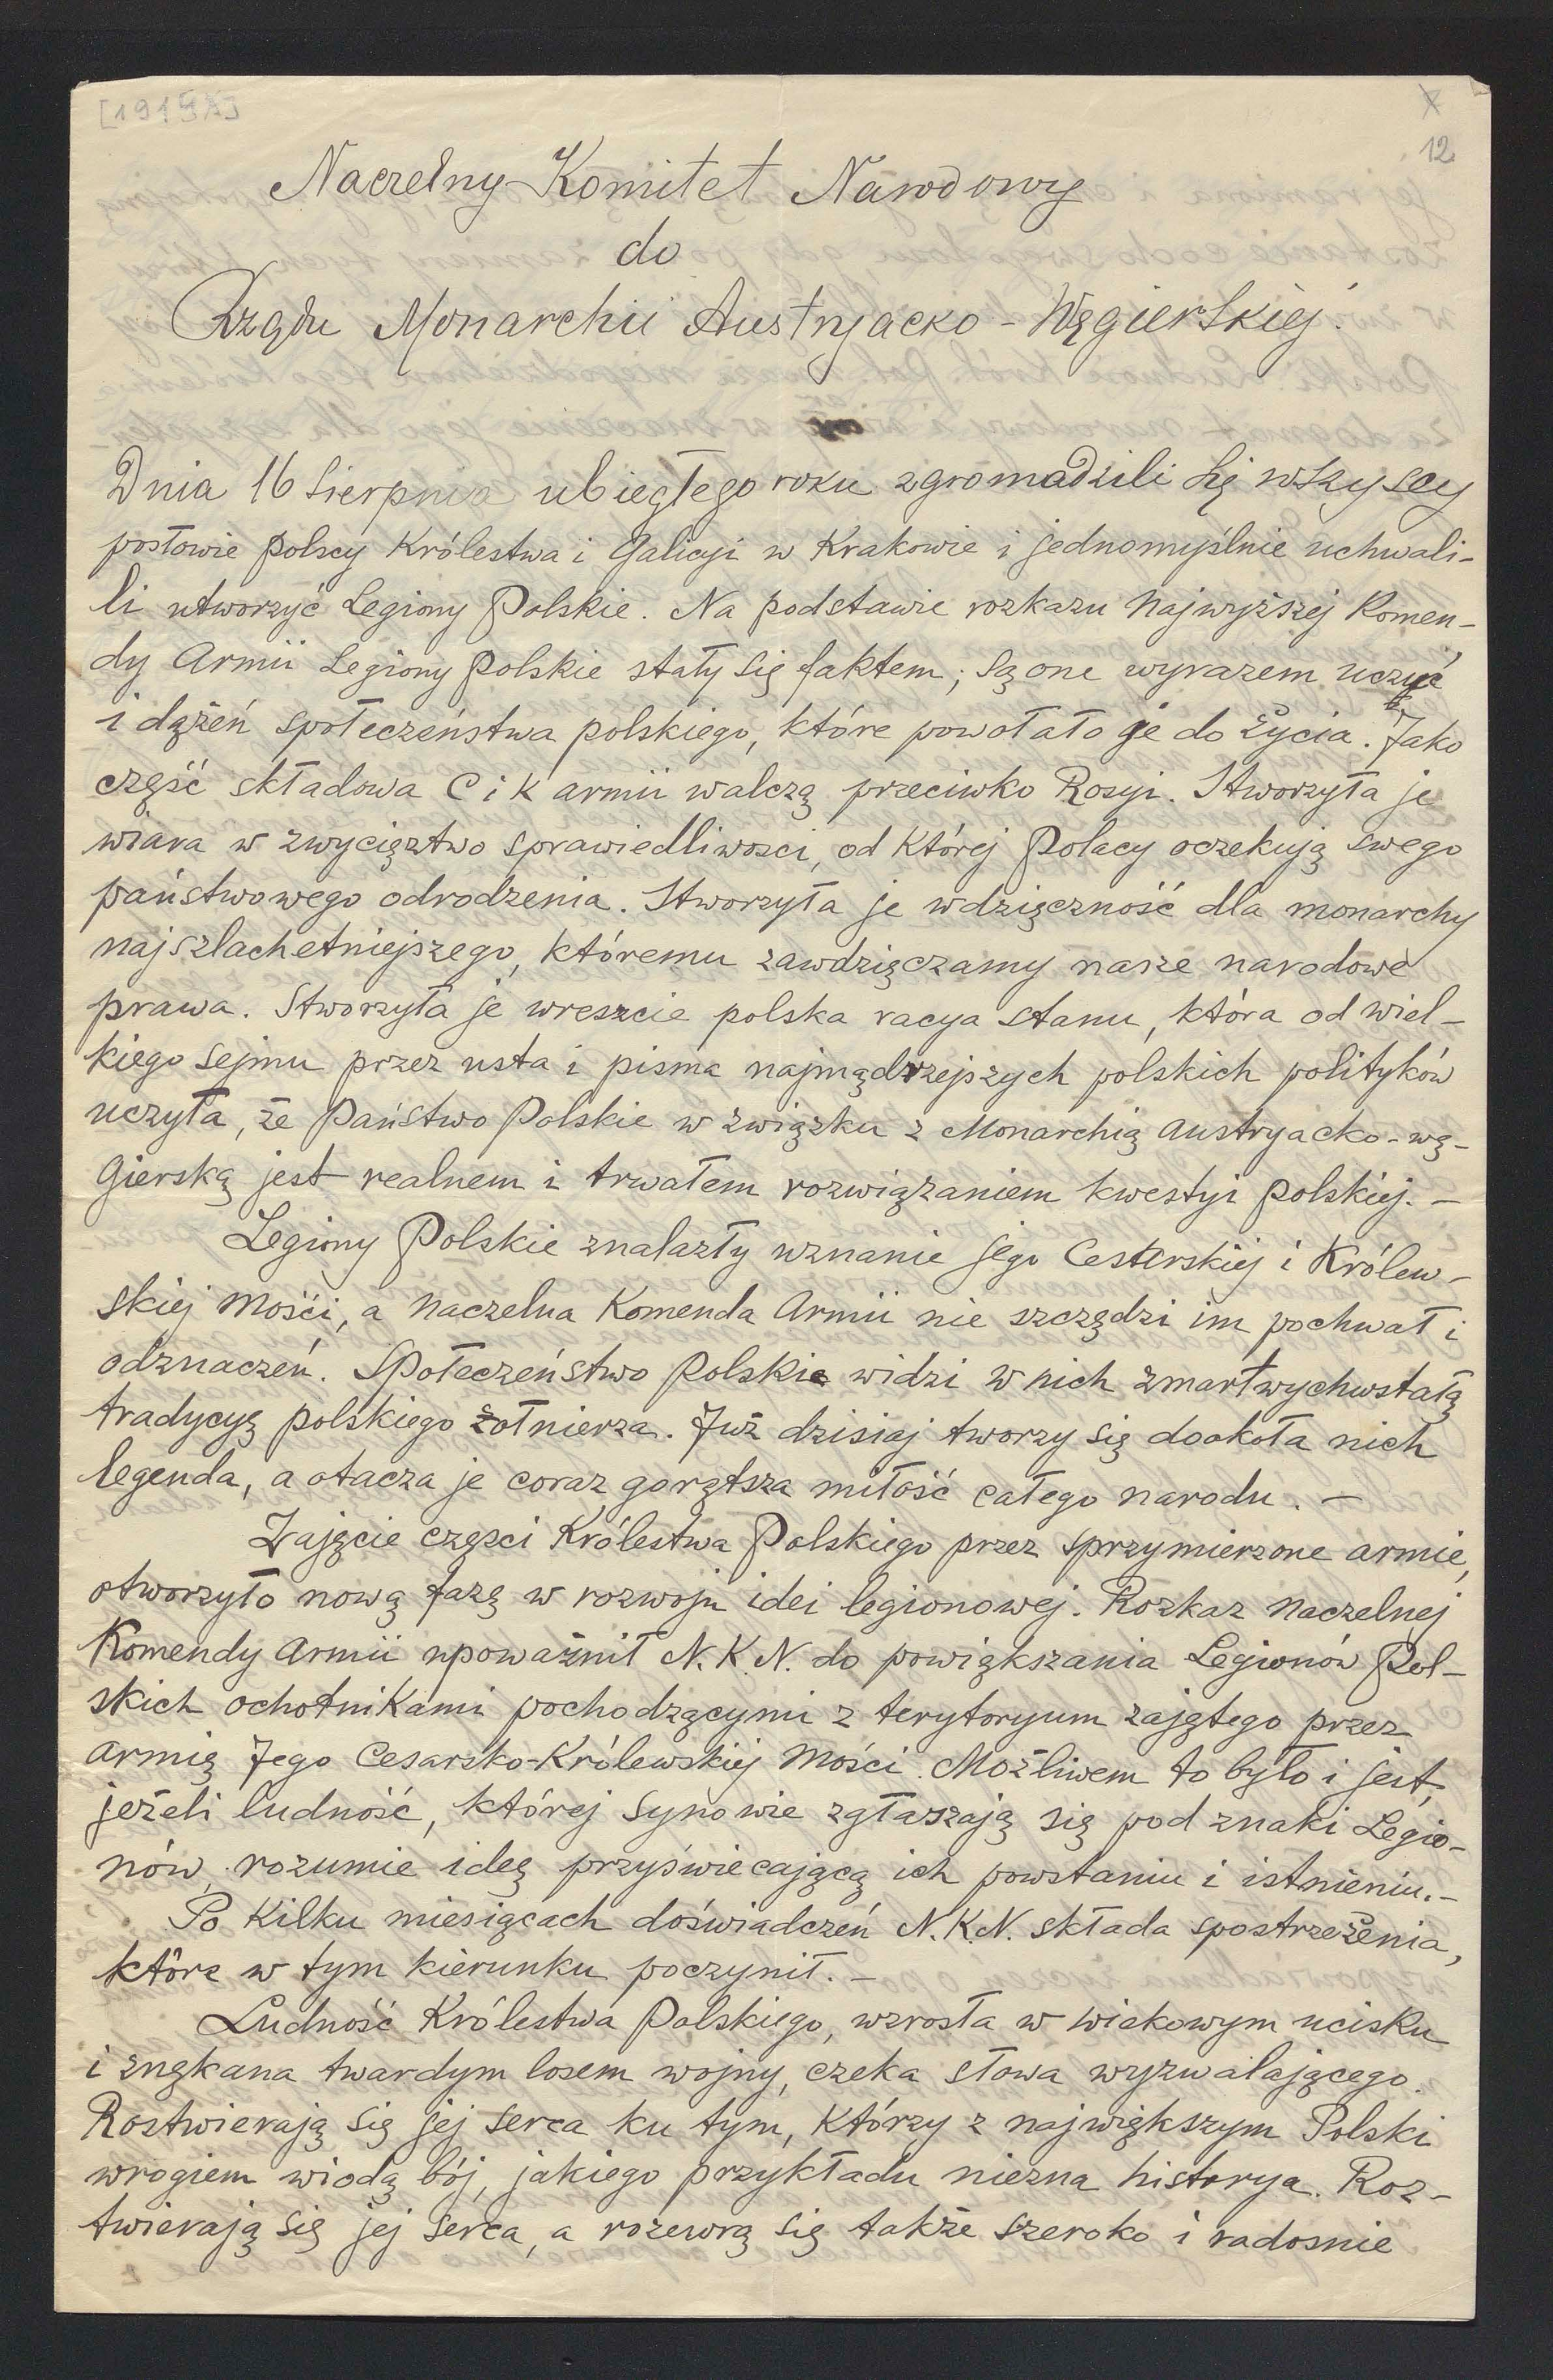 12
Naczelny Komitet Narodowy
do
Rządu Monarchii Austryacko-Węgierskiej.
Dnia 16 Sierpnia ubiegłego roku zgromadzili się wszyscy
posłowie polscy Królestwa i Galicyi w Krakowie i jednomyślnie uchwali-
li utworzyć Legiony Polskie. Na podstawie rozkazu Najwyższej Komen-
dy Armii Legiony Polskie stały się faktem; są one wyrazem uczuć
i dążeń społeczeństwa polskiego, które powołało je do życia. Jako
część składowa C i K armii walczą przeciwko Rosyi. Stworzyła je
wiara w zwycięztwo sprawiedliwosci, od której Polacy oczekują swego
państwowego odrodzenia. Stworzyła je wdzięczność dla monarchy
najszlachetniejszego, któremu zawdzięczamy nasze narodowe
prawa. Stworzyła je wreszcie polska racya stanu, która od wiel-
kiego sejmu przez usta i pisma najmądrzejszych polskich polityków
uczyła, że Państwo Polskie w związku z Monarchią austryacko-wę-
gierską jest realnem i trwałem rozwiązaniem kwestyi polskiej. –
Legiony Polskie znalazły uznanie Jego Cesarskiej i Królew-
skiej Mości, a Naczelna Komenda Armii nie szczędzi im pochwał i
odznaczeń. Społeczeństwo polskie widzi w nich zmartwychwstałą
tradycyę polskiego żołnierza. Już dzisiaj tworzy się dookoła nich
legenda, a otacza je coraz gorętsza miłość całego narodu. –
Zajęcie częsci Królestwa Polskiego przez sprzymierzone armie,
otworzyło nową fazę w rozwoju idei legionowej. Rozkaz Naczelnej
Komendy Armii upoważnił N.K.N. do powiększania Legionów Pol-
skich ochotnikami pochodzącymi z terytoryum zajętego przez
armię Jego Cesarsko-Królewskiej Mości. Możliwem to było i jest,
jeżeli ludność, której synowie zgłaszają się pod znaki Legio-
nów, rozumie ideę przyświecającą ich powstaniu i istnieniu. –
Po kilku miesiącach doświadczeń N.K.N. składa spostrzeżenia,
które w tym kierunku poczynił. –
Ludność Królestwa Polskiego, wzrosła w wiekowym ucisku
i znękana twardym losem wojny, czeka słowa wyzwalającego.
Roztwierają się jej serca ku tym, którzy z największym Polski
wrogiem wiodą bój, jakiego przykładu niezna historya. Roz-
twierają się jej serca, a rozewrą się także szeroko i radosnie